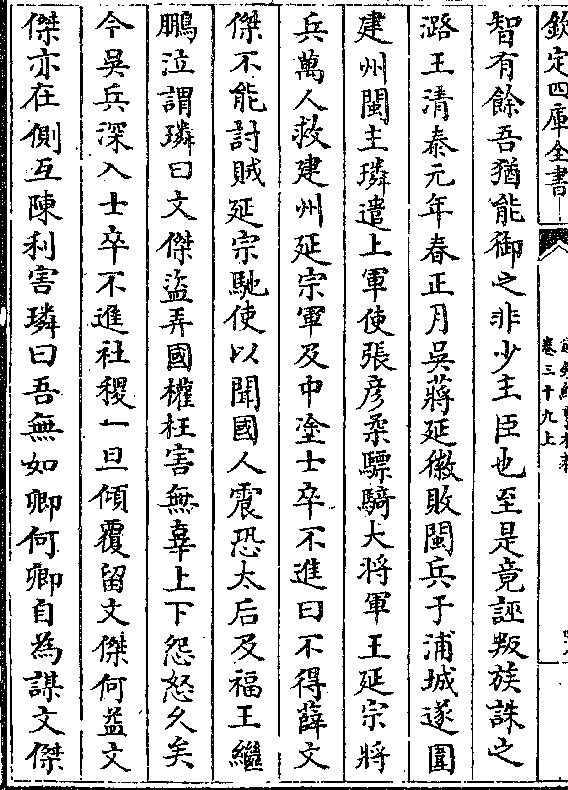 欽定四庫全書
卷三十九上
智有餘吾猶能御之非少主臣也至是竟誣叛族誅之
潞王清泰元年春正月吳蔣延徽敗閩兵于浦城遂圍
建州閩主璘遣上軍使張彦柔驃騎大將軍王延宗將
兵萬人救建州延宗軍及中塗士卒不進曰不得薛文
傑不能討賊延宗馳使以聞國人震恐太后及福王繼
鵬泣謂璘曰文傑盜弄國權枉害無辜上下怨怒久矣
今吳兵深入士卒不進社稷一旦傾覆留文傑何益文
傑亦在側互陳利害璘曰吾無如卿何卿自為謀文傑